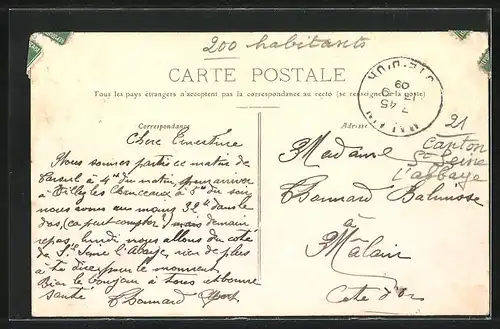 200 habitants
CARTE POSTALE
Tous les pays étrangers n'acceptent pas la correspondance au recto (se renseigner à la poste)
Correspondance
Adresse
CÔTE-D'OR
7 45
09
21
Canton
St Seine
L'abbaye
Chere Ernestine
Nous sommes partie ce matin de
à 4h du matin, pour arriver
à Billy les Chanceaux à 5h du soir
nous avons au moins 32 dans le
dos, (ca peut compter) mais demain
repos, lundi nous allons du coté
de St Seine l'Abaye, rien de plus
à te dire pour le moment,
Bien le bonjour à tous et bonne
santé Thomard
Madame
Thomard
à
Mâlain
Cote d'Or